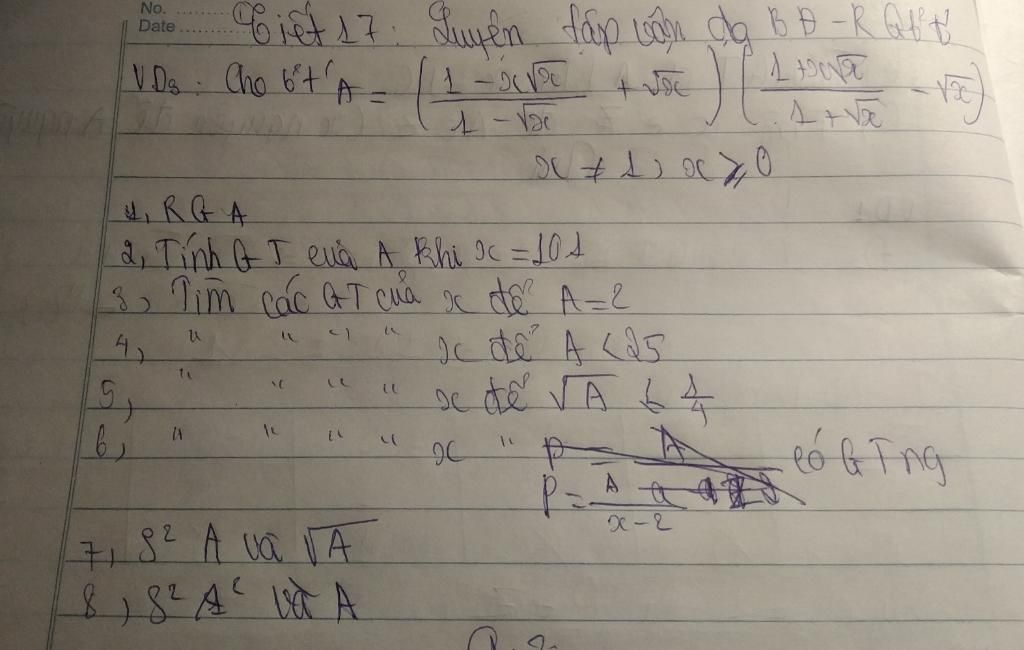 No.
Date
Tiết 17: Luyện tập vận dg BĐ - RG bt
VD3: Cho b^t t^' A = (\frac{1 - x\sqrt{x}}{1 - \sqrt{x}} + \sqrt{x}) (\frac{1 + x\sqrt{x}}{1 + \sqrt{x}} - \sqrt{x})
x ≠ 1, x ⩾ 0
1, RG A
2, Tính GT của A khi x = 101
3, Tìm các GT của x để A = 2
4, " " " " x để A < 25
5, " " " " x để \sqrt{A} ≤ \frac{1}{4}
6, " " " " x " P = \frac{A}{x - 2} có GT ng
7, S² A và \sqrt{A}
8, S² A² và A